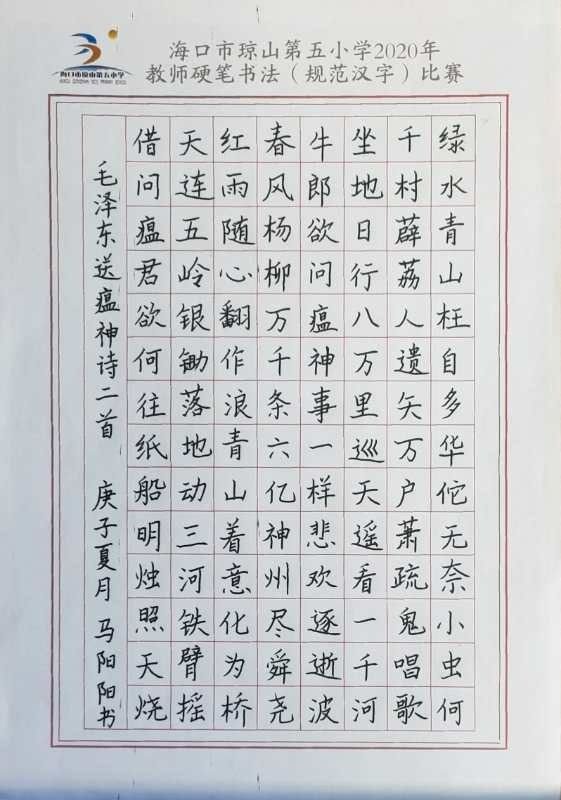 海口市琼山第五小学
海口市琼山第五小学2020年
教师硬笔书法（规范汉字）比赛
绿水青山枉自多华佗无奈小虫何
千村薜荔人遗矢万户萧疏鬼唱歌
坐地日行八万里巡天遥看一千河
牛郎欲问瘟神事一样悲欢逐逝波
春风杨柳万千条六亿神州尽舜尧
红雨随心翻作浪青山着意化为桥
天连五岭银锄落地动三河铁臂摇
借问瘟君欲何往纸船明烛照天烧
毛泽东送瘟神诗二首 庚子夏月 马阳阳书